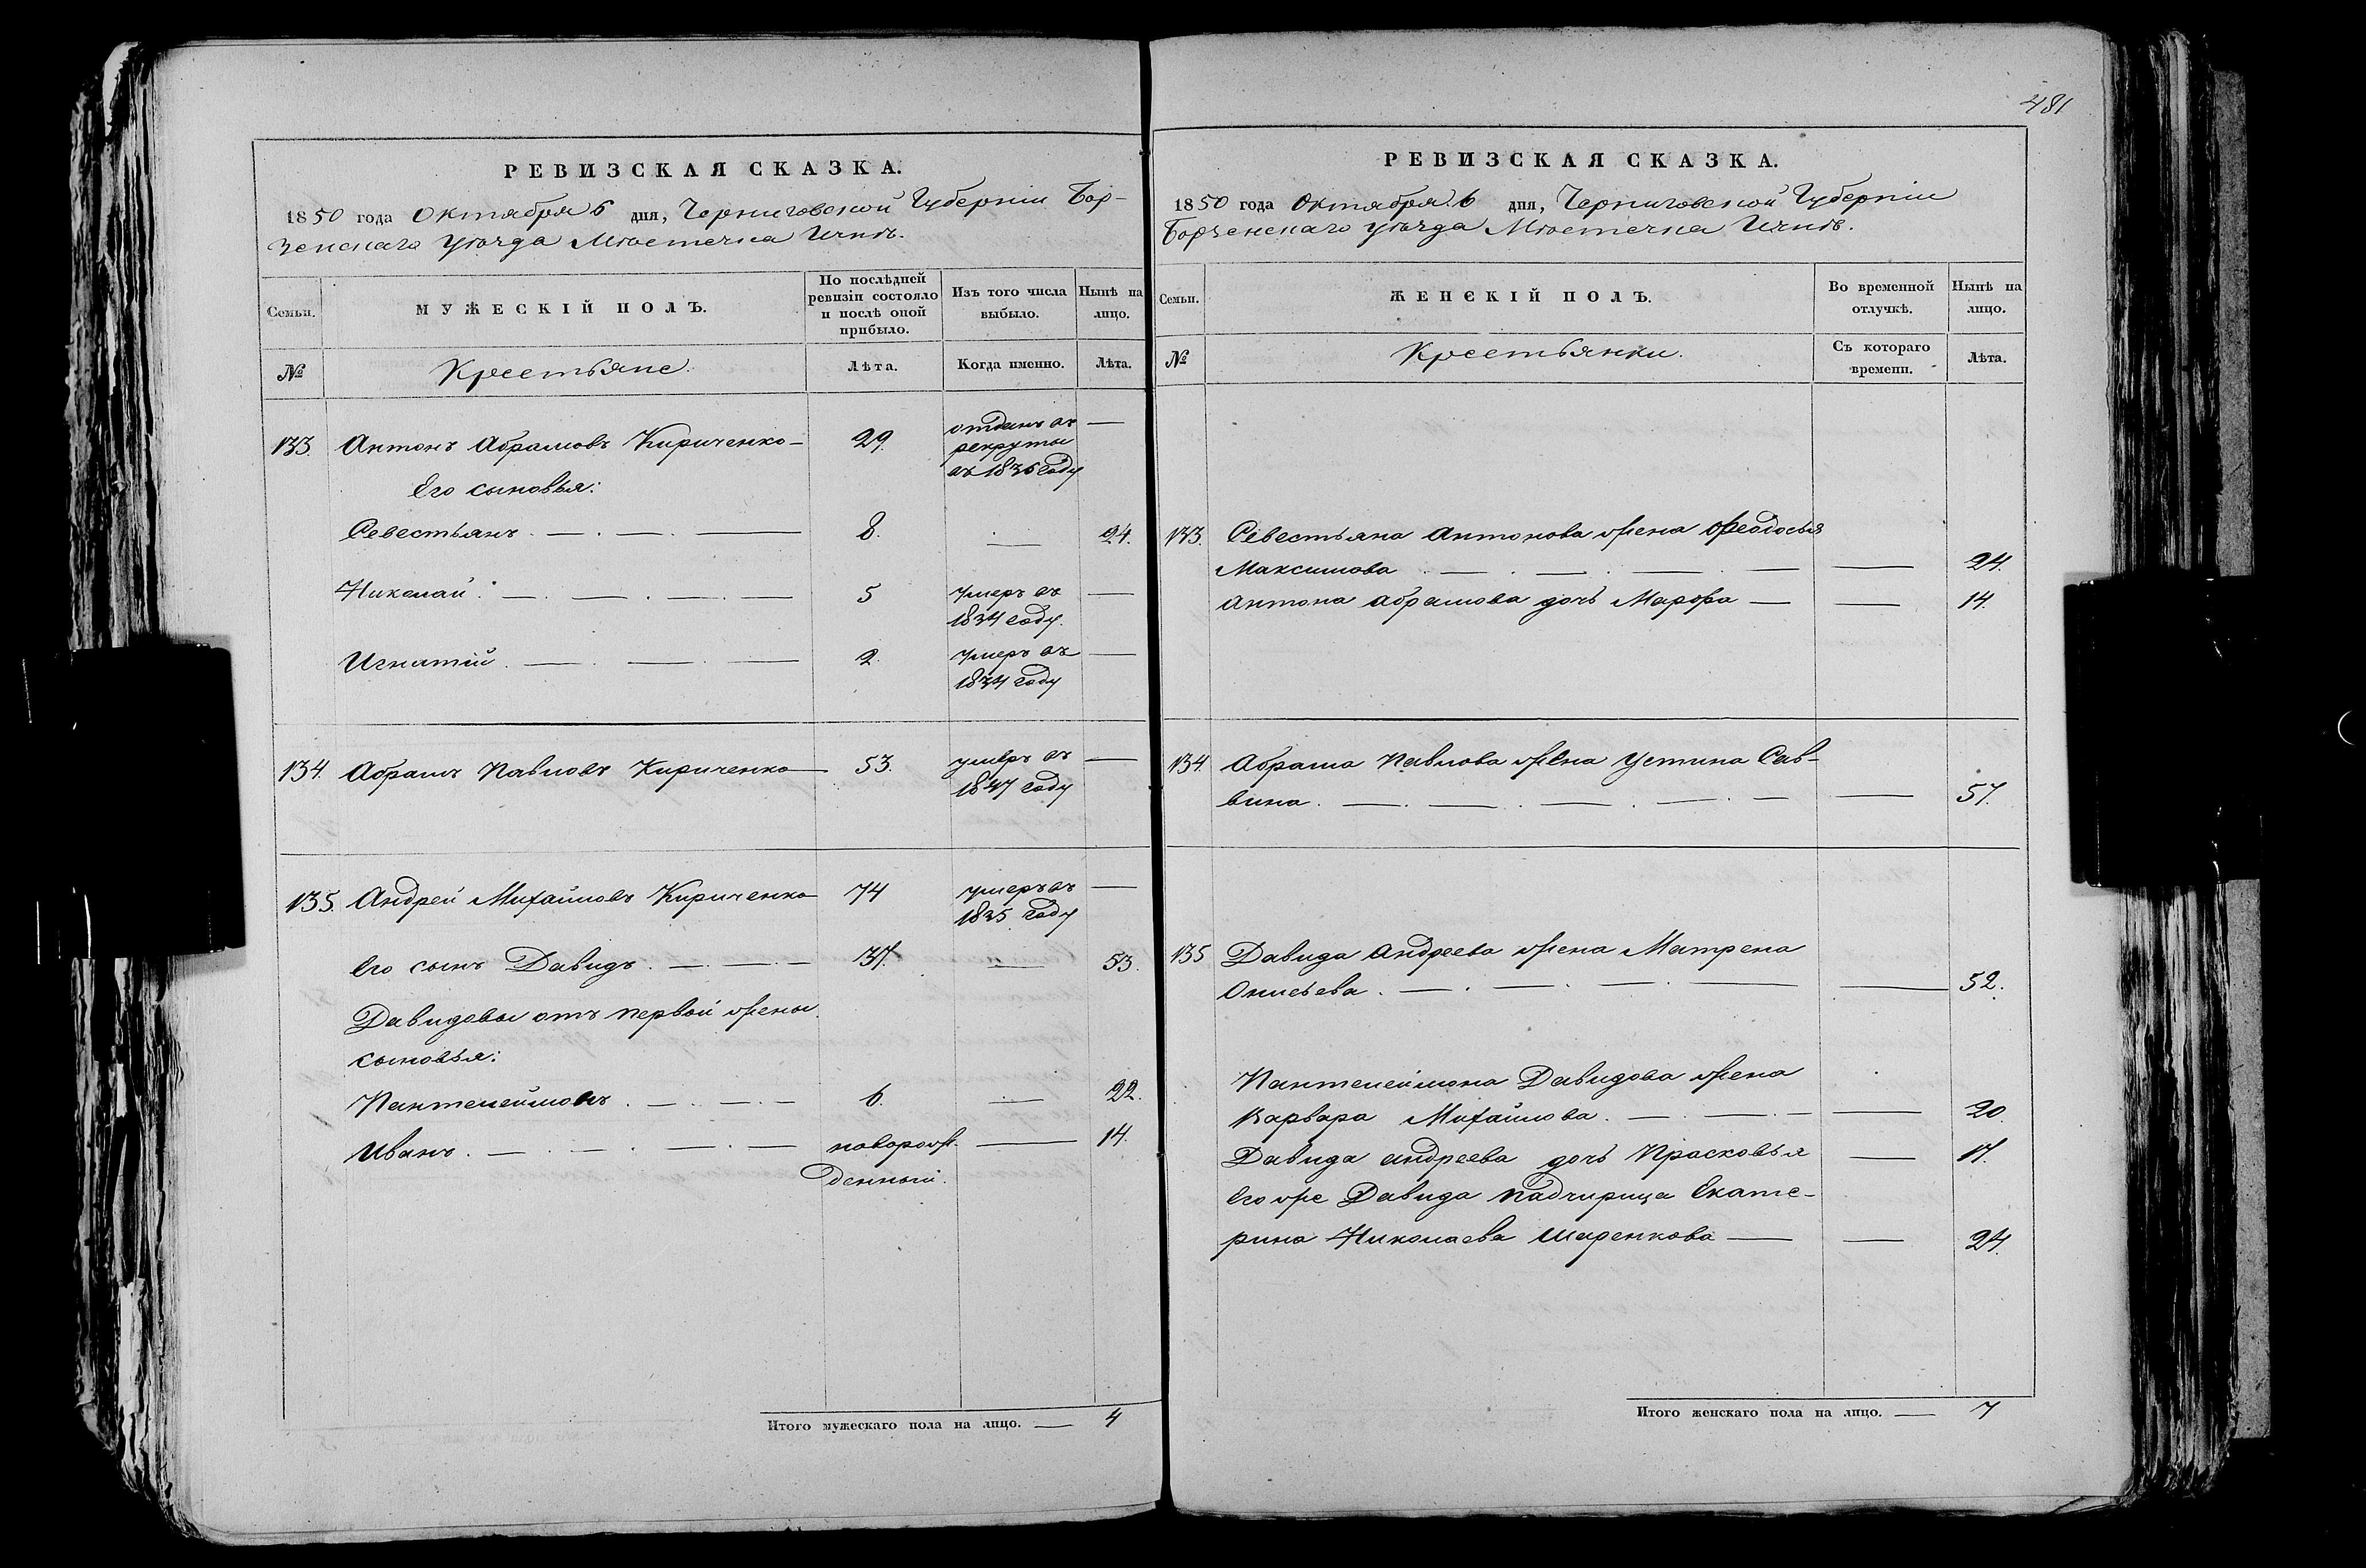 РЕВИЗСКАЯ СКАЗКА.
1850 года Октября 6 дня, Черниговской Губерніи Бор-
зенскаго уѣзда Мѣстечка Ични.
Семьи.
МУЖЕСКІЙ ПОЛЪ.
По послѣдней ревизіи состояло и послѣ оной прибыло.
Изъ того числа выбыло.
Нынѣ на лицо.
№
Крестьяне.
Лѣта.
Когда именно.
Лѣта.
133. Антонъ Абрамовъ Кириченко — 29. отданъ въ —
рекруты
въ 1836 году
Его сыновья:
Севестьянъ. — . — . — 8. — 24.
Николай. — . — . — . — 5 умеръ въ —
1834 году.
Игнатій. — . — . — 2. умеръ въ —
1834 году
134. Абрамъ Павловъ Кириченко — 53. умеръ въ —
1847 году
135. Андрей Михайловъ Кириченко 74 умеръ въ —
1835 году
Его сынъ Давидъ. — . — . — 37. — 53.
Давидовы отъ первой жены
сыновья:
Пантелеймонъ. — . — . — 6. — 22.
Иванъ. — . — . — . — новорож- — 14.
денный.
Итого мужескаго пола на лицо. — 4
481
РЕВИЗСКАЯ СКАЗКА.
1850 года Октября 6 дня, Черниговской Губерніи
Борзенскаго уѣзда Мѣстечка Ични.
Семьи.
ЖЕНСКІЙ ПОЛЪ.
Во временной отлучкѣ.
Нынѣ на лицо.
№
Крестьянки.
Съ котораго времени.
Лѣта.
133. Севестьяна Антонова жена Феодосья
Максимова . — . — . — . — — 24.
Антона Абрамова дочь Марфа — — 14.
134. Абрама Павлова жена Устина Сав-
вина. — . — . — . — . — — 57.
135 Давида Андреева жена Матрена
Онисьева. — . — . — . — — 52.
Пантелеймона Давидова жена
Варвара Михайлова. — . — . — — 20.
Давида Андреева дочь Прасковья — 17.
Его же Давида падчирица Екате-
рина Николаева Шаренкова — — 24.
Итого женскаго пола на лицо. — 7